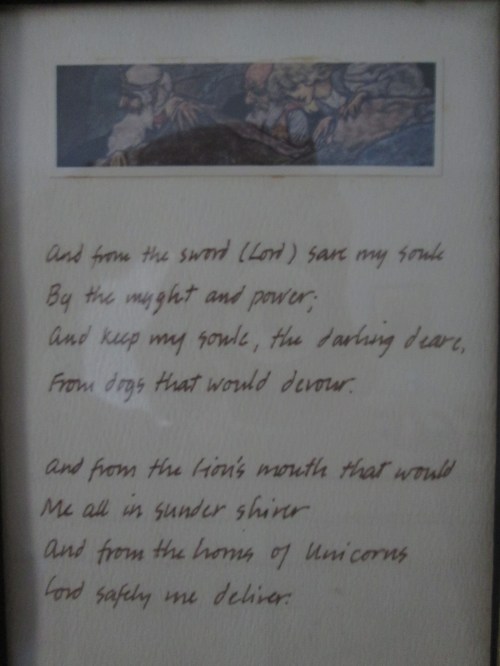 And from the sword (Lord) save my soule
By the myght and power;
And keep my soule, the darling deare,
From dogs that would devour.
And from the lion's mouth that would
Me all in sunder shiver
And from the horns of Unicorns
Lord safely me deliver.